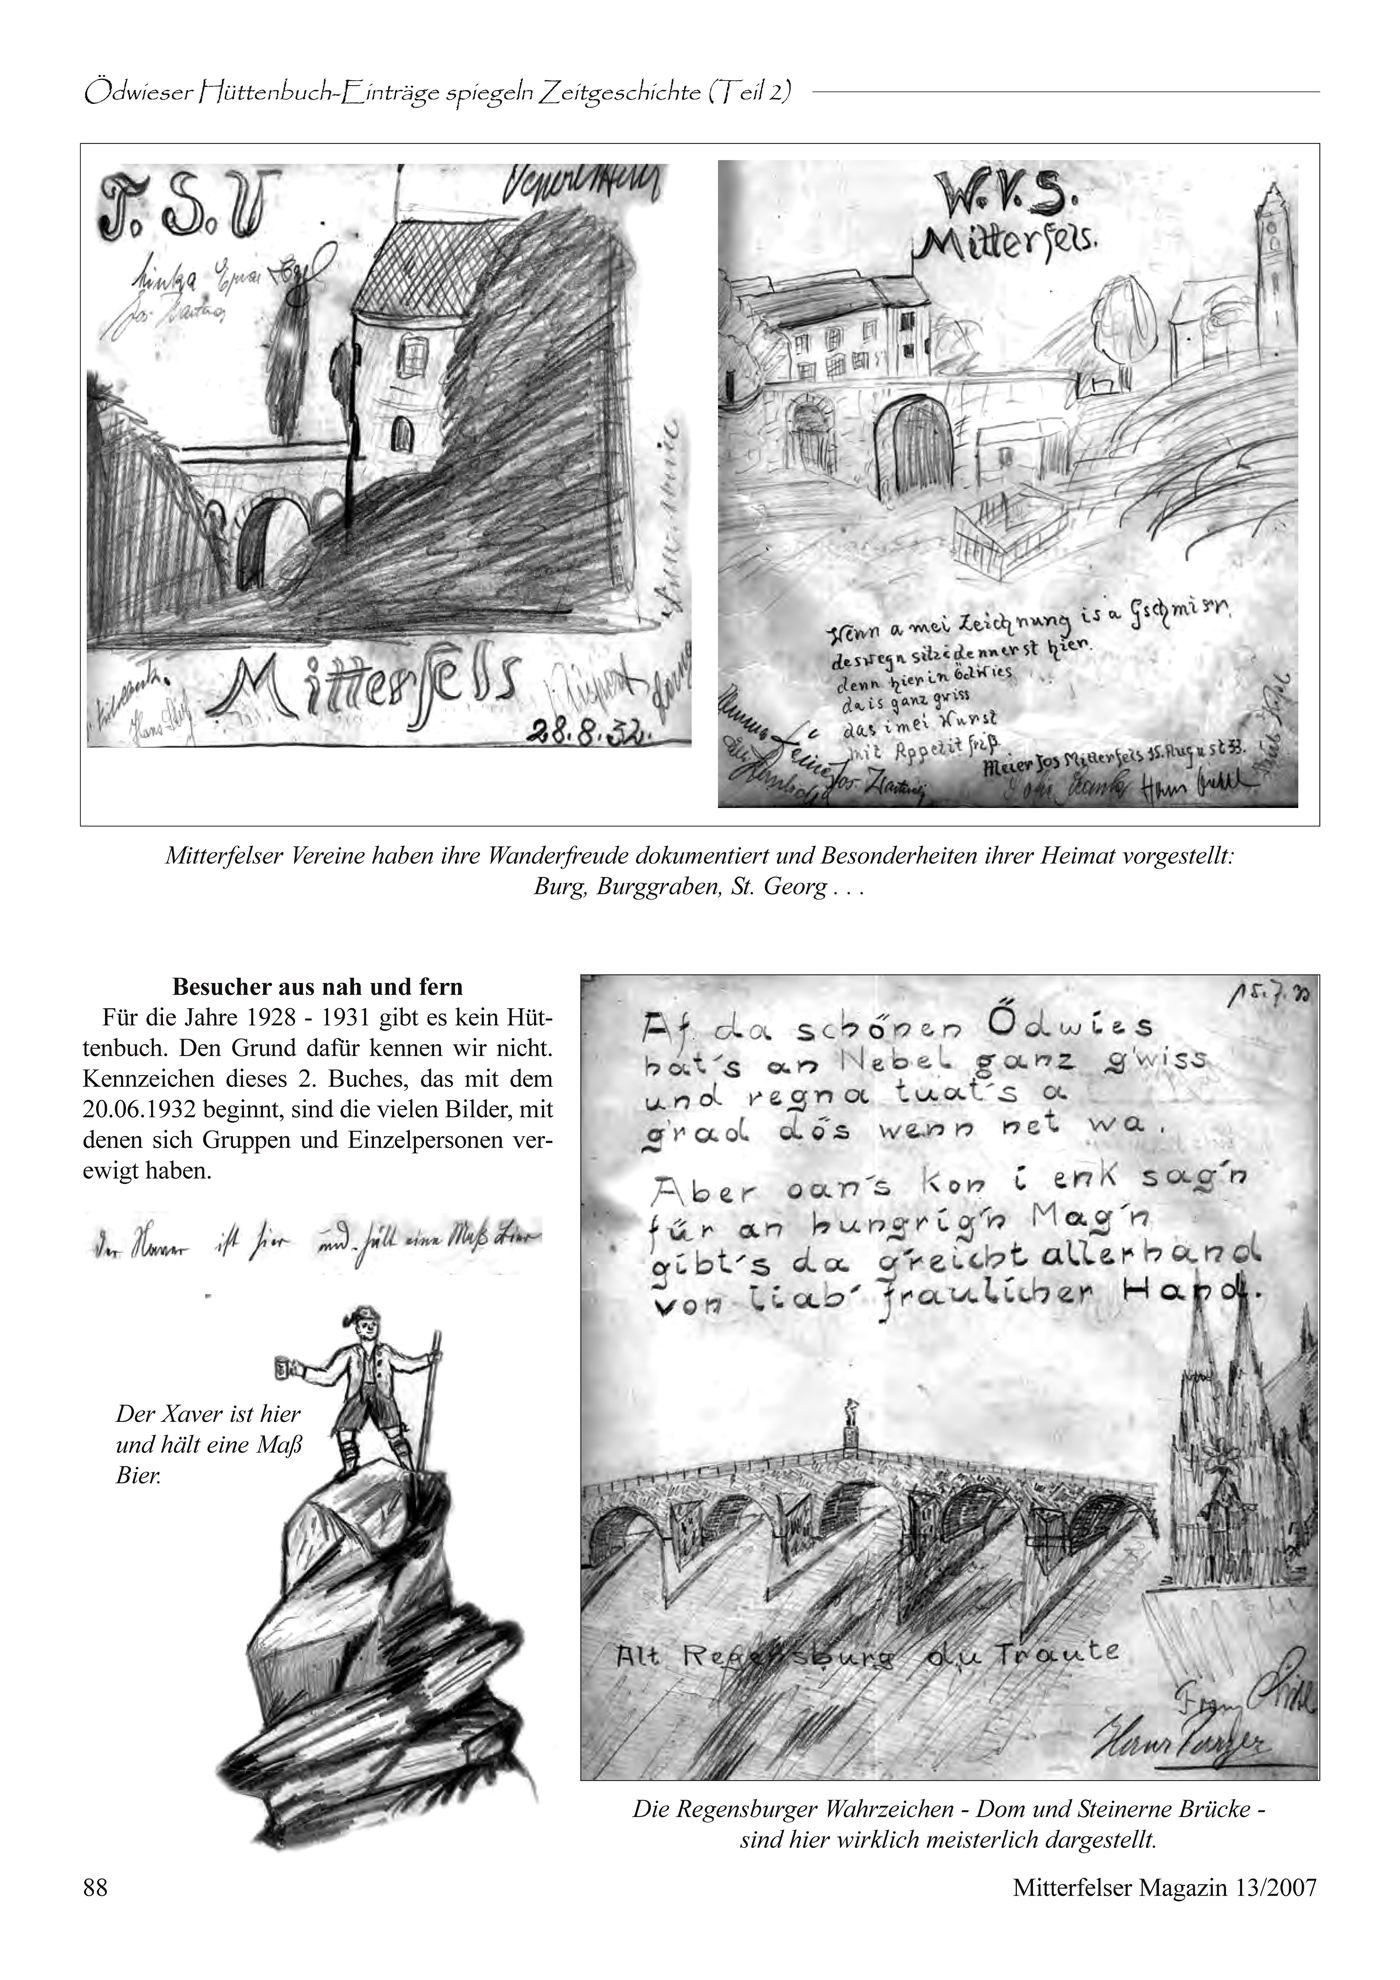 Ödwieser Hüttenbuch-Einträge spiegeln Zeitgeschichte (Teil 2)
T. S. V
Mitterfels
28.8.32.
W.V.S.
Mitterfels.
Wenn a mei Zeichnung is a Gschmisr,
deswegn sitz i dennerst hier.
denn hier in Ödwies
da is ganz gwiss
das i mei Wurst
mit Appetit friß
Meier Jos Mitterfels 15. August 33.
Jos. Hartung
Hans
Mitterfelser Vereine haben ihre Wanderfreude dokumentiert und Besonderheiten ihrer Heimat vorgestellt:
Burg, Burggraben, St. Georg . . .
Besucher aus nah und fern
Für die Jahre 1928 - 1931 gibt es kein Hüt-
tenbuch. Den Grund dafür kennen wir nicht.
Kennzeichen dieses 2. Buches, das mit dem
20.06.1932 beginnt, sind die vielen Bilder, mit
denen sich Gruppen und Einzelpersonen ver-
ewigt haben.
der Xaver ist hier und hält eine Maß Bier
Der Xaver ist hier
und hält eine Maß
Bier.
15.7.33
Af da schönen Ödwies
hat's an Nebel ganz g'wiss
und regna tuat's a
g'rad dös wenn net wa.
Aber oan's kon i enk sag'n
für an hungrig'n Mag'n
gibt's da g'reicht allerhand
von liab' fraulicher Hand.
Alt Regensburg du Traute
Franz
Hans
Die Regensburger Wahrzeichen - Dom und Steinerne Brücke -
sind hier wirklich meisterlich dargestellt.
88
Mitterfelser Magazin 13/2007